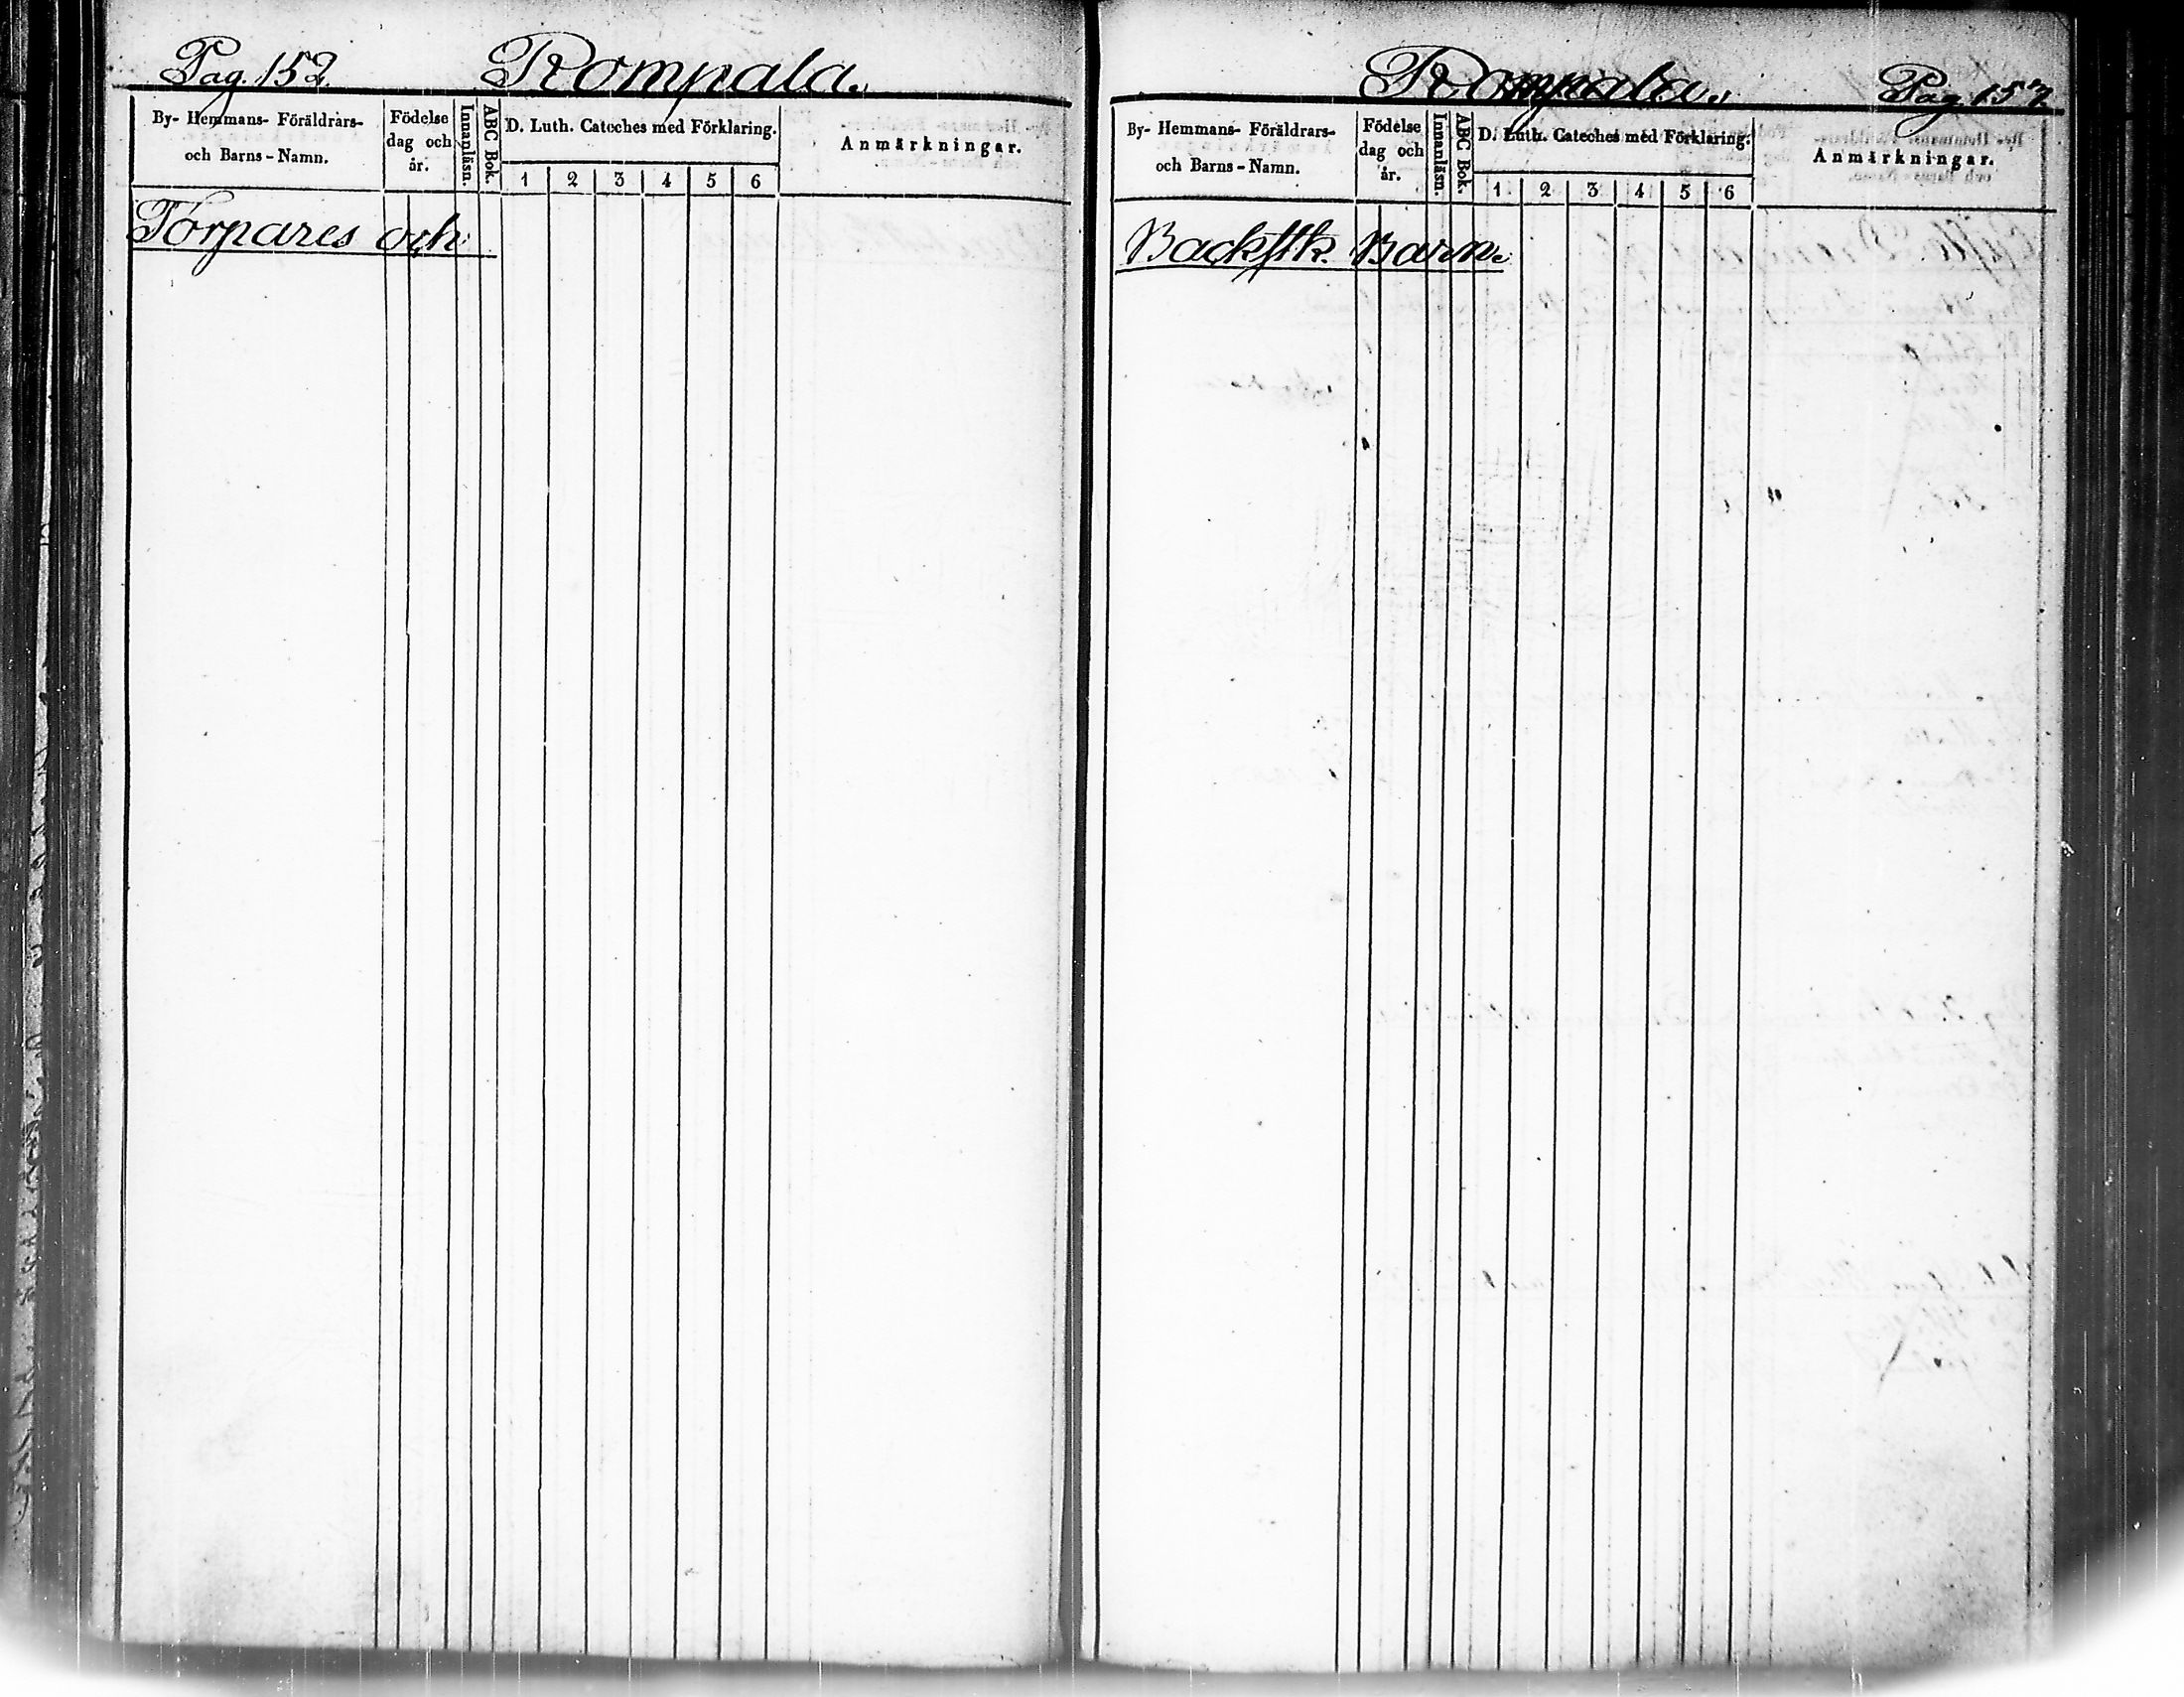 Pag. 152. Rompala.
By- Hemmans- Föräldrars-
och Barns-Namn.
Födelse
dag och
år.
Innanläsn.
ABC Bok.
D. Luth. Cateches med Förklaring.
1 2 3 4 5 6
Anmärkningar.
Torpares och
Rompala. Pag. 157.
By- Hemmans- Föräldrars-
och Barns-Namn.
Födelse
dag och
år.
Innanläsn.
ABC Bok.
D. Luth. Cateches med Förklaring.
1 2 3 4 5 6
Anmärkningar.
Backstk. Barn.